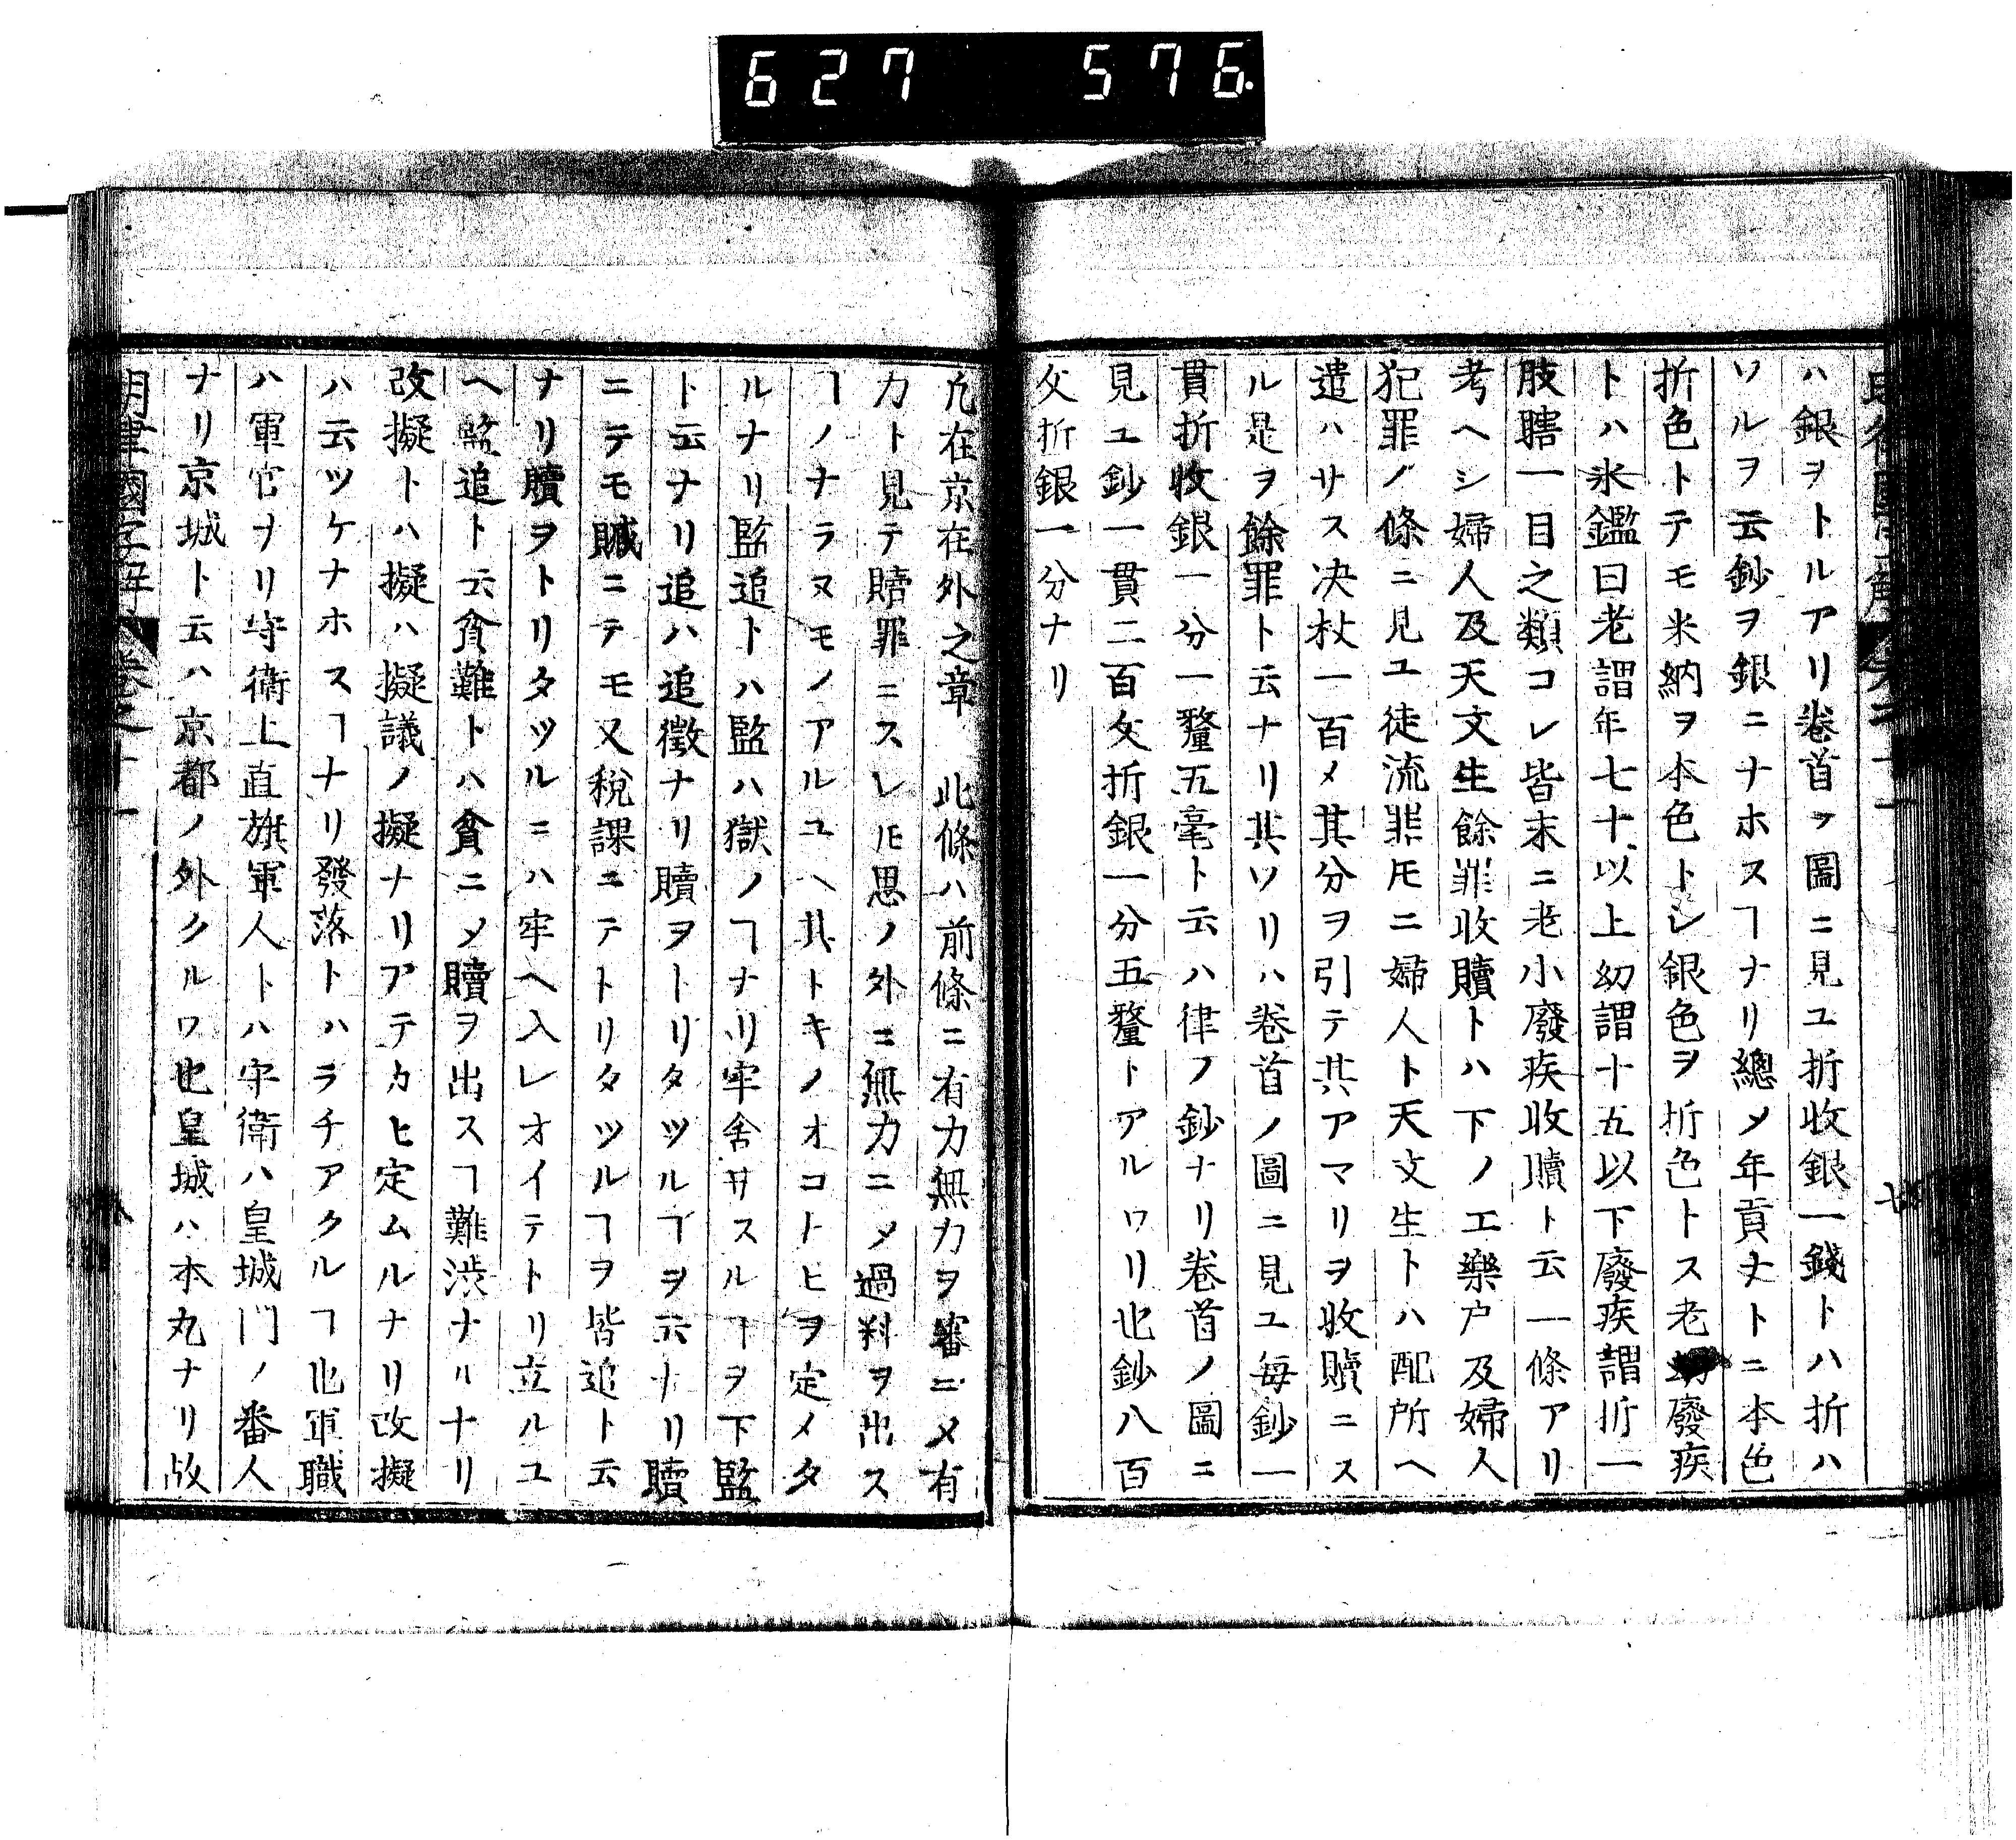 627 576
ハ銀ヲトルアリ卷首ノ圖ニ見ユ折收銀一錢トハ折ハ
ソルヲ云鈔ヲ銀ニナホスヿナリ總メ年貢ナトニ本色
折色トテモ米納ヲ本色トシ銀色ヲ折色トス老幼廢疾
トハ氷鑑曰老謂年七十以上幼謂十五以下廢疾謂折一
肢瞎一目之類コレ皆末ニ老小廢疾收贖ト云一條アリ
考ヘシ婦人及天文生餘罪收贖トハ下ノ工樂戶及婦人
犯罪ノ條ニ見ユ徒流罪𪜈ニ婦人ト天文生トハ配所ヘ
遣ハサス决杖一百メ其分ヲ引テ其アマリヲ收贖ニス
ル是ヲ餘罪ト云ナリ其ソリハ卷首ノ圖ニ見ユ每鈔一
貫折收銀一分一釐五毫ト云ハ律ノ鈔ナリ卷首ノ圖ニ
見ユ鈔一貫二百文折銀一分五釐トアルワリ也鈔八百
文折銀一分ナリ
凡在京在外之章 此條ハ前條ニ有力無力ヲ審ニメ有
力ト見テ贖罪ニスレ𪜈思ノ外ニ無力ニメ過料ヲ出ス
ヿノナラヌモノアルユヘ其トキノオコトヒヲ定メタ
ルナリ監追トハ監ハ獄ノヿナリ牢舍サスルヿヲ下監
ト云ナリ追ハ追徵ナリ贖ヲトリタツルヿヲ云ナリ贖
ニテモ贓ニテモ又稅課ニテトリタツルヿヲ皆追ト云
ナリ贖ヲトリタツルニハ牢ヘ入レオイテトリ立ルユ
ヘ監追ト云貧難トハ貧ニメ贖ヲ出スヿ難渋ナルナリ
改擬トハ擬ハ擬議ノ擬ナリアテカヒ定ムルナリ改擬
ハ云ツケナホスヿナリ發落トハラチアクルヿ也軍職
ハ軍官ナリ守衛上直旗軍人トハ守衛ハ皇城門ノ番人
ナリ京城ト云ハ京都ノ外クルワ也皇城ハ本丸ナリ故
明律國字解 卷之十一